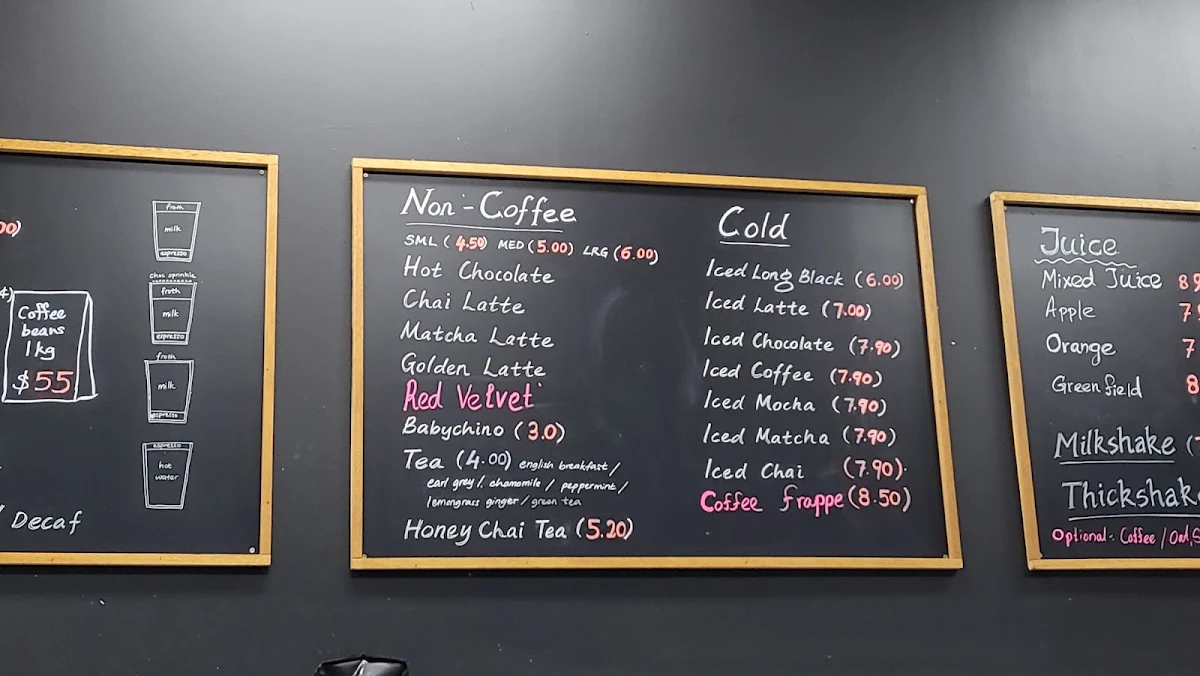 00)
Coffee
beans
1kg
$55
froth
milk
espresso
choc sprinkle
froth
milk
espresso
froth
milk
espresso
espresso
hot
water
/ Decaf
Non-Coffee
SML (4.50) MED (5.00) LRG (6.00)
Hot Chocolate
Chai Latte
Matcha Latte
Golden Latte
Red Velvet
Babychino (3.0)
Tea (4.00) english breakfast /
earl grey / chamomile / peppermint /
lemongrass ginger / green tea
Honey Chai Tea (5.20)
Cold
Iced Long Black (6.00)
Iced Latte (7.00)
Iced Chocolate (7.90)
Iced Coffee (7.90)
Iced Mocha (7.90)
Iced Matcha (7.90)
Iced Chai (7.90)
Coffee frappe (8.50)
Juice
Mixed Juice 8
Apple 7
Orange 7
Green field 8
Milkshake (
Thickshak
Optional - Coffee / Oat, S